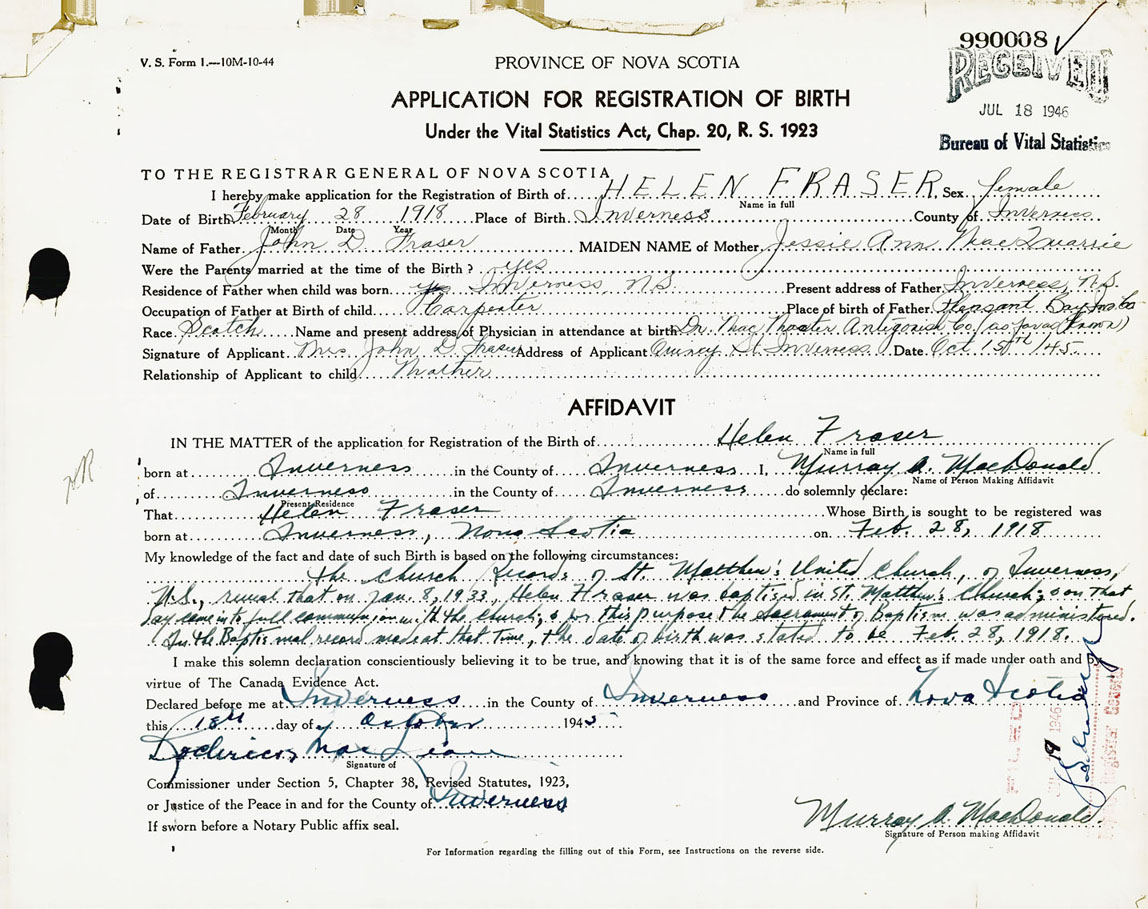 990008
V. S. Form 1.—10M-10-44
PROVINCE OF NOVA SCOTIA
RECEIVED
APPLICATION FOR REGISTRATION OF BIRTH
JUL 18 1946
Under the Vital Statistics Act, Chap. 20, R. S. 1923
Bureau of Vital Statistics
TO THE REGISTRAR GENERAL OF NOVA SCOTIA
I hereby make application for the Registration of Birth of HELEN FRASER, Sex female
Name in full
Date of Birth February 28 1918 Place of Birth Inverness County of Inverness
Month Date Year
Name of Father John D. Fraser MAIDEN NAME of Mother Jessie Ann MacQuarrie
Were the Parents married at the time of the Birth? yes
Residence of Father when child was born Inverness, N.S. Present address of Father Inverness, N.S.
Occupation of Father at Birth of child Carpenter Place of birth of Father Pleasant Bay
Race Scotch Name and present address of Physician in attendance at birth Dr. Mac Master Antigonish Co. (as far as known)
Signature of Applicant Mrs John D. Fraser Address of Applicant St Inverness Date Oct 15th/45
Relationship of Applicant to child Mother
AFFIDAVIT
IN THE MATTER of the application for Registration of the Birth of Helen Fraser
Name in full
born at Inverness in the County of Inverness I, Murray A. MacDonald
Name of Person Making Affidavit
of Inverness in the County of Inverness do solemnly declare:
Present Residence
That Helen Fraser Whose Birth is sought to be registered was
born at Inverness, Nova Scotia on Feb. 28, 1918
My knowledge of the fact and date of such Birth is based on the following circumstances:
the Church Records of St. Matthew's United Church, of Inverness,
N.S., reveal that on Jan. 8, 1933, Helen Fraser was baptised in St. Matthew's Church; & on that
day came into full communion with the Church; & for this purpose the Sacrament of Baptism was administered.
In the Baptismal record made at that time, the date of birth was stated to be Feb. 28, 1918.
I make this solemn declaration conscientiously believing it to be true, and knowing that it is of the same force and effect as if made under oath and by
virtue of The Canada Evidence Act.
Declared before me at Inverness in the County of Inverness and Province of Nova Scotia
this 18th day of October 1945
Roderick MacLean
Signature of
Commissioner under Section 5, Chapter 38, Revised Statutes, 1923,
or Justice of the Peace in and for the County of Inverness
If sworn before a Notary Public affix seal.
Murray A. MacDonald.
Signature of Person making Affidavit
For Information regarding the filling out of this Form, see Instructions on the reverse side.